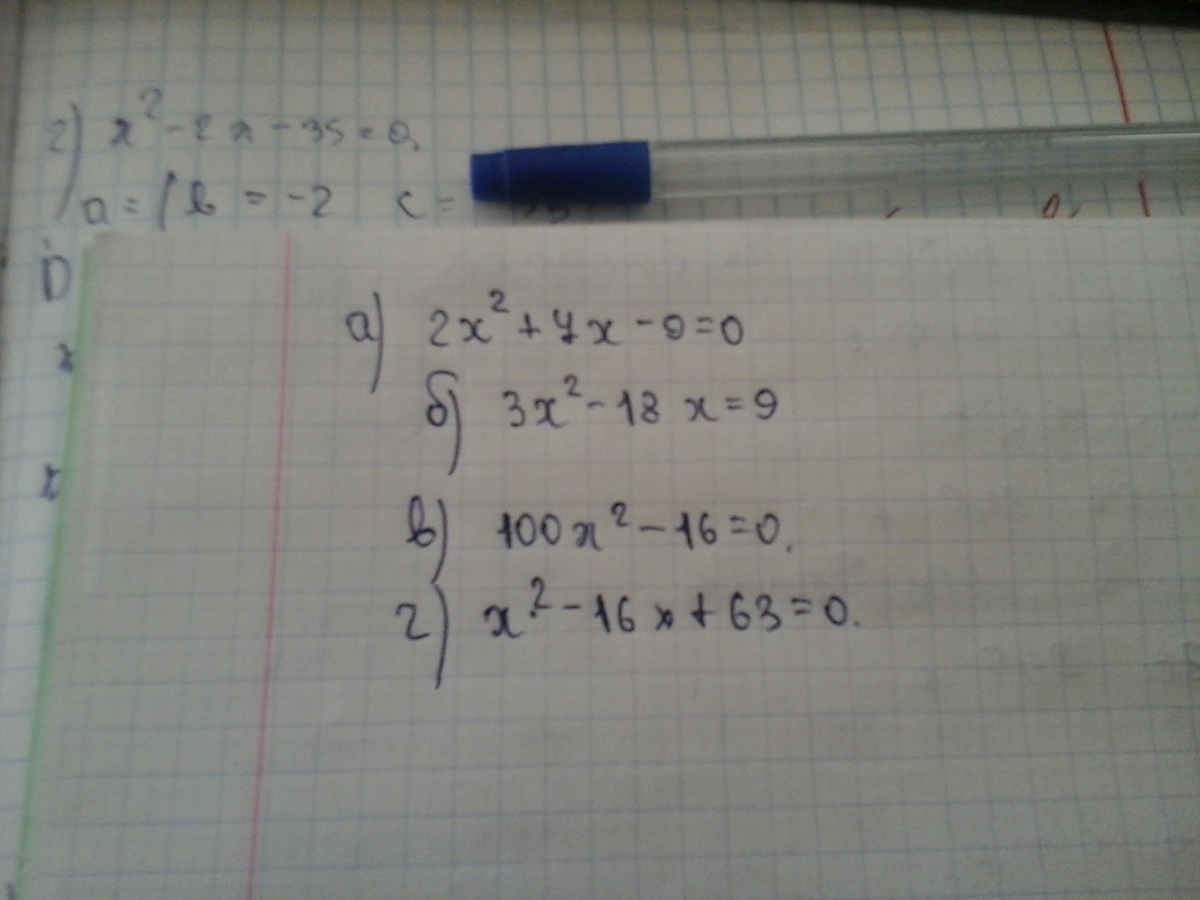 г) x² - 2x - 35 = 0.
a = 1 b = -2 c =
D
x
x
а) 2x² + 7x - 9 = 0
б) 3x² - 18x = 9
в) 100x² - 16 = 0.
г) x² - 16x + 63 = 0.